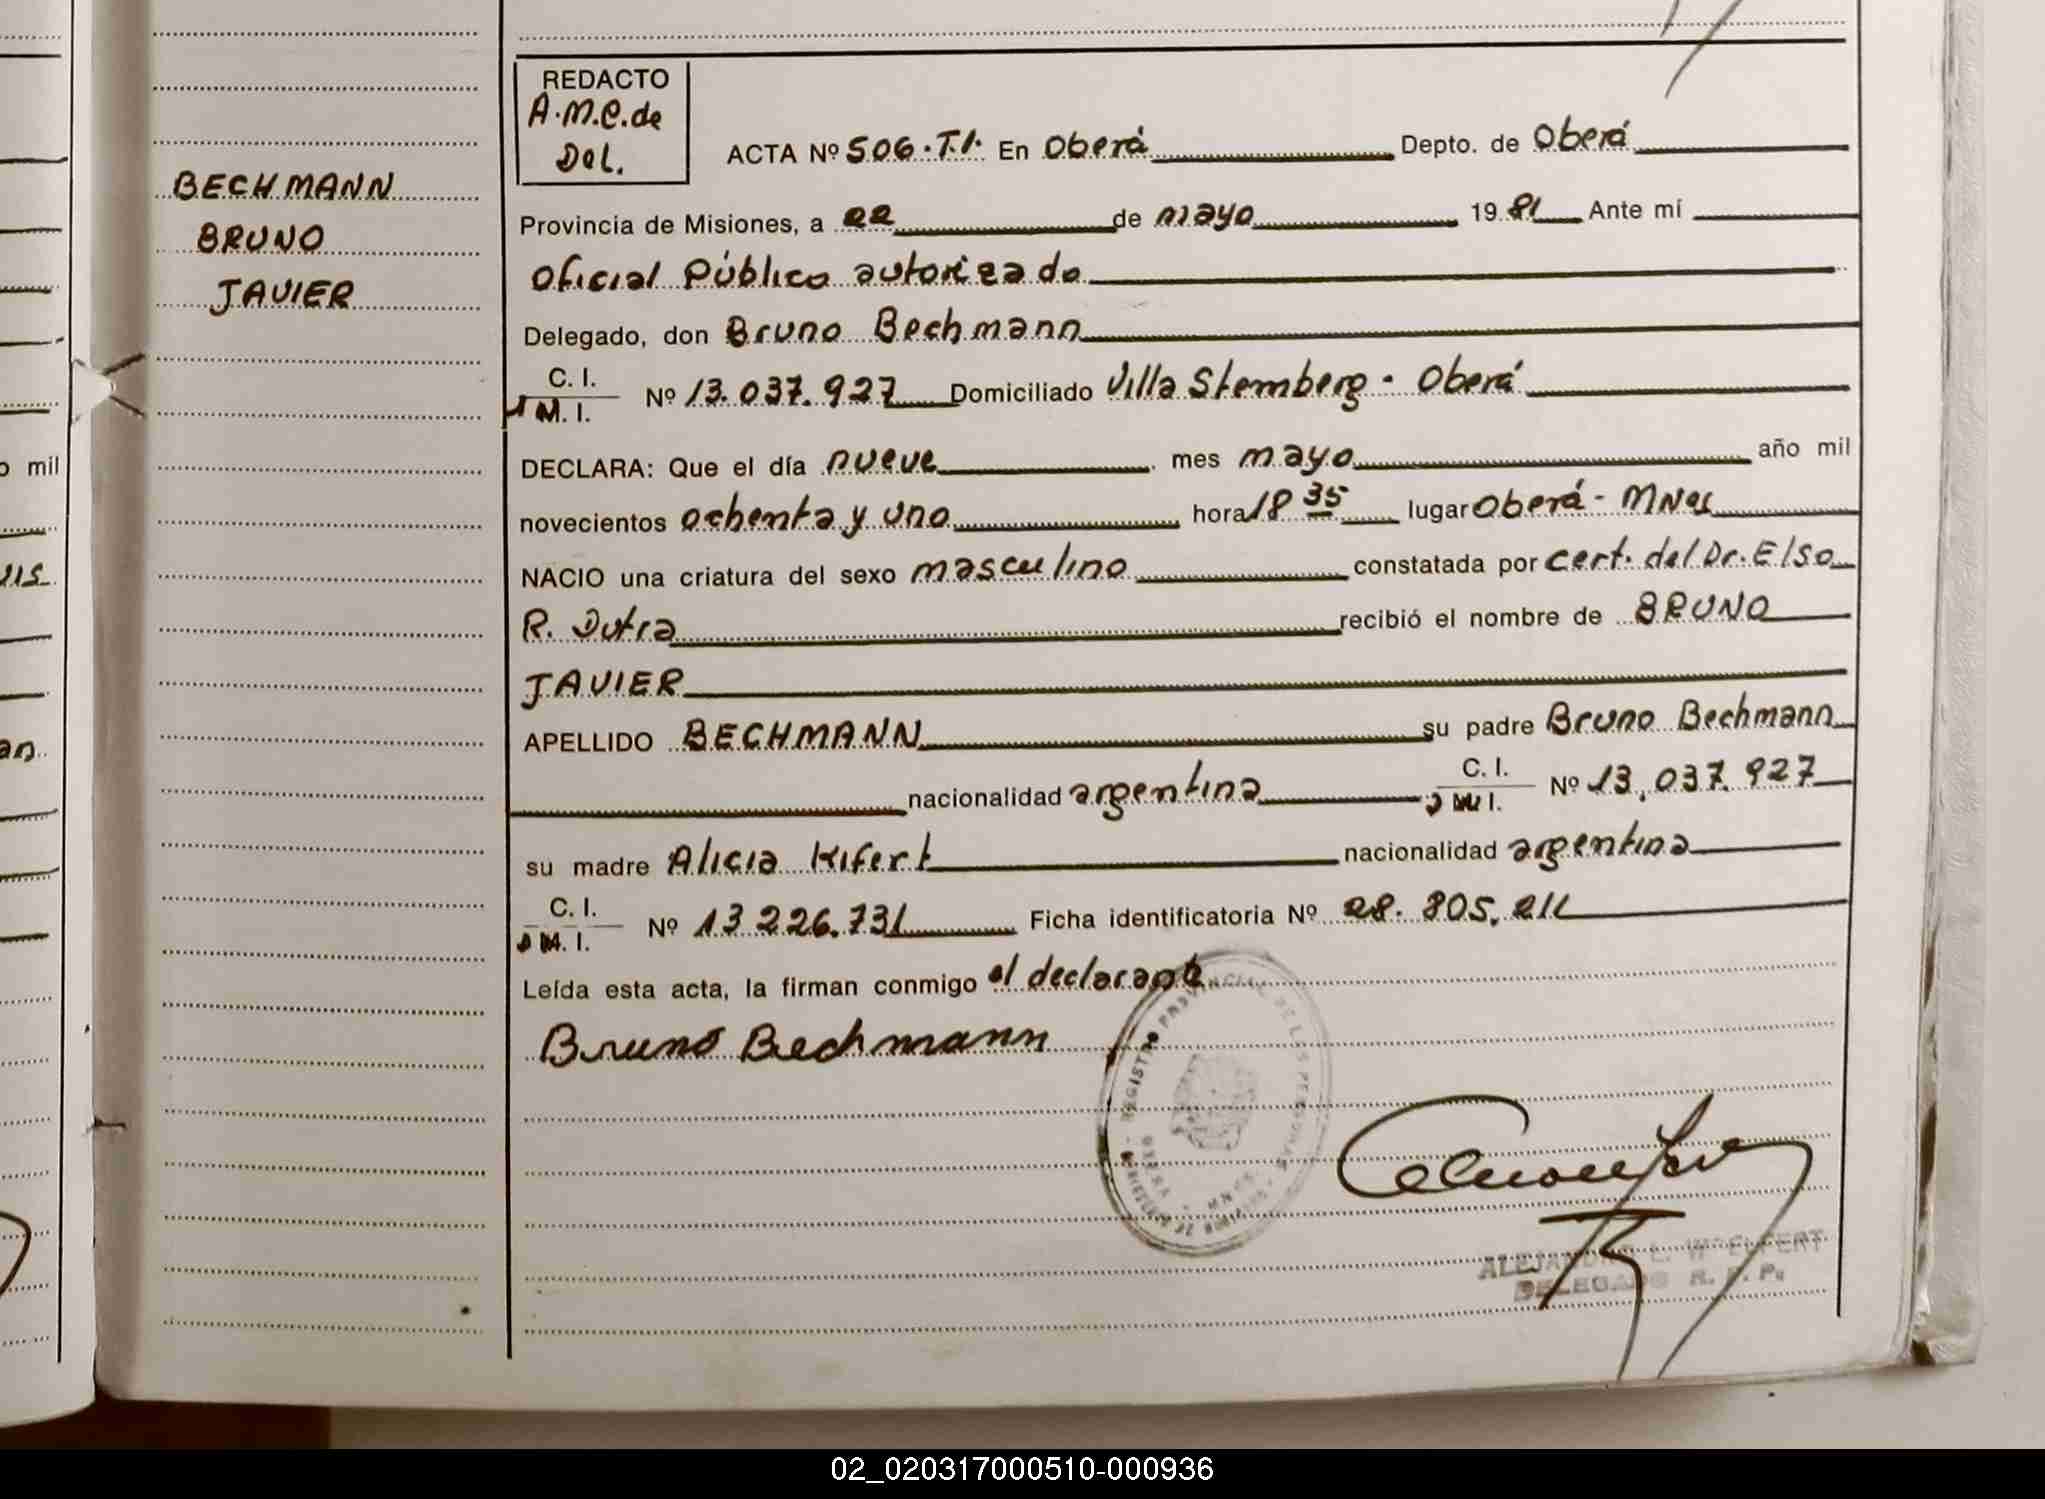 REDACTO
A.M.C. de
Del.
BECHMANN
BRUNO
JAVIER
ACTA Nº 506.T.I. En Oberá Depto. de Oberá
Provincia de Misiones, a 22 de mayo 19 81 Ante mí
Oficial Público autorizado
Delegado, don Bruno Bechmann
C. I.
M. I. Nº 13.037.927 Domiciliado Villa Stemberg - Oberá
DECLARA: Que el día nueve mes mayo año mil
novecientos ochenta y uno hora 18 35 lugar Oberá - MNes
NACIO una criatura del sexo masculino constatada por cert. del Dr. Elso
R. Dutra recibió el nombre de BRUNO
JAVIER
APELLIDO BECHMANN su padre Bruno Bechmann
nacionalidad argentina C. I. Nº 13.037.927
su madre Alicia Kifert nacionalidad argentina
C. I.
M. I. Nº 13 226.731 Ficha identificatoria Nº 28.805.211
Leída esta acta, la firman conmigo el declarante
Bruno Bechmann
REGISTRO PROVINCIAL DE LAS PERSONAS
OBERA
DELEGADO R. P. P.
o mil
uis
an
02_020317000510-000936